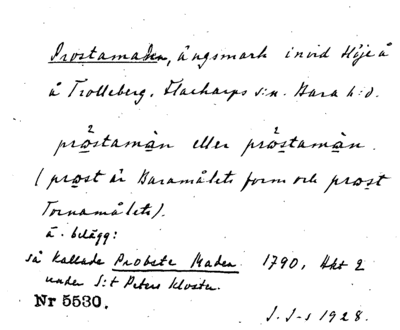 Prostamaden, ängsmark invid Höje å
å Trolleberg, Flackarps s:n. Bara h:d.
pro̲stamàn eller prò̲stamàn.
(pro̲st är Baramålets form och pro̲st
Tornamålets).
ä. belägg:
så kallade Probste Maden 1790, Akt 2
under S:t Peters Kloster.
Nr 5530.
J. J-s 1928.